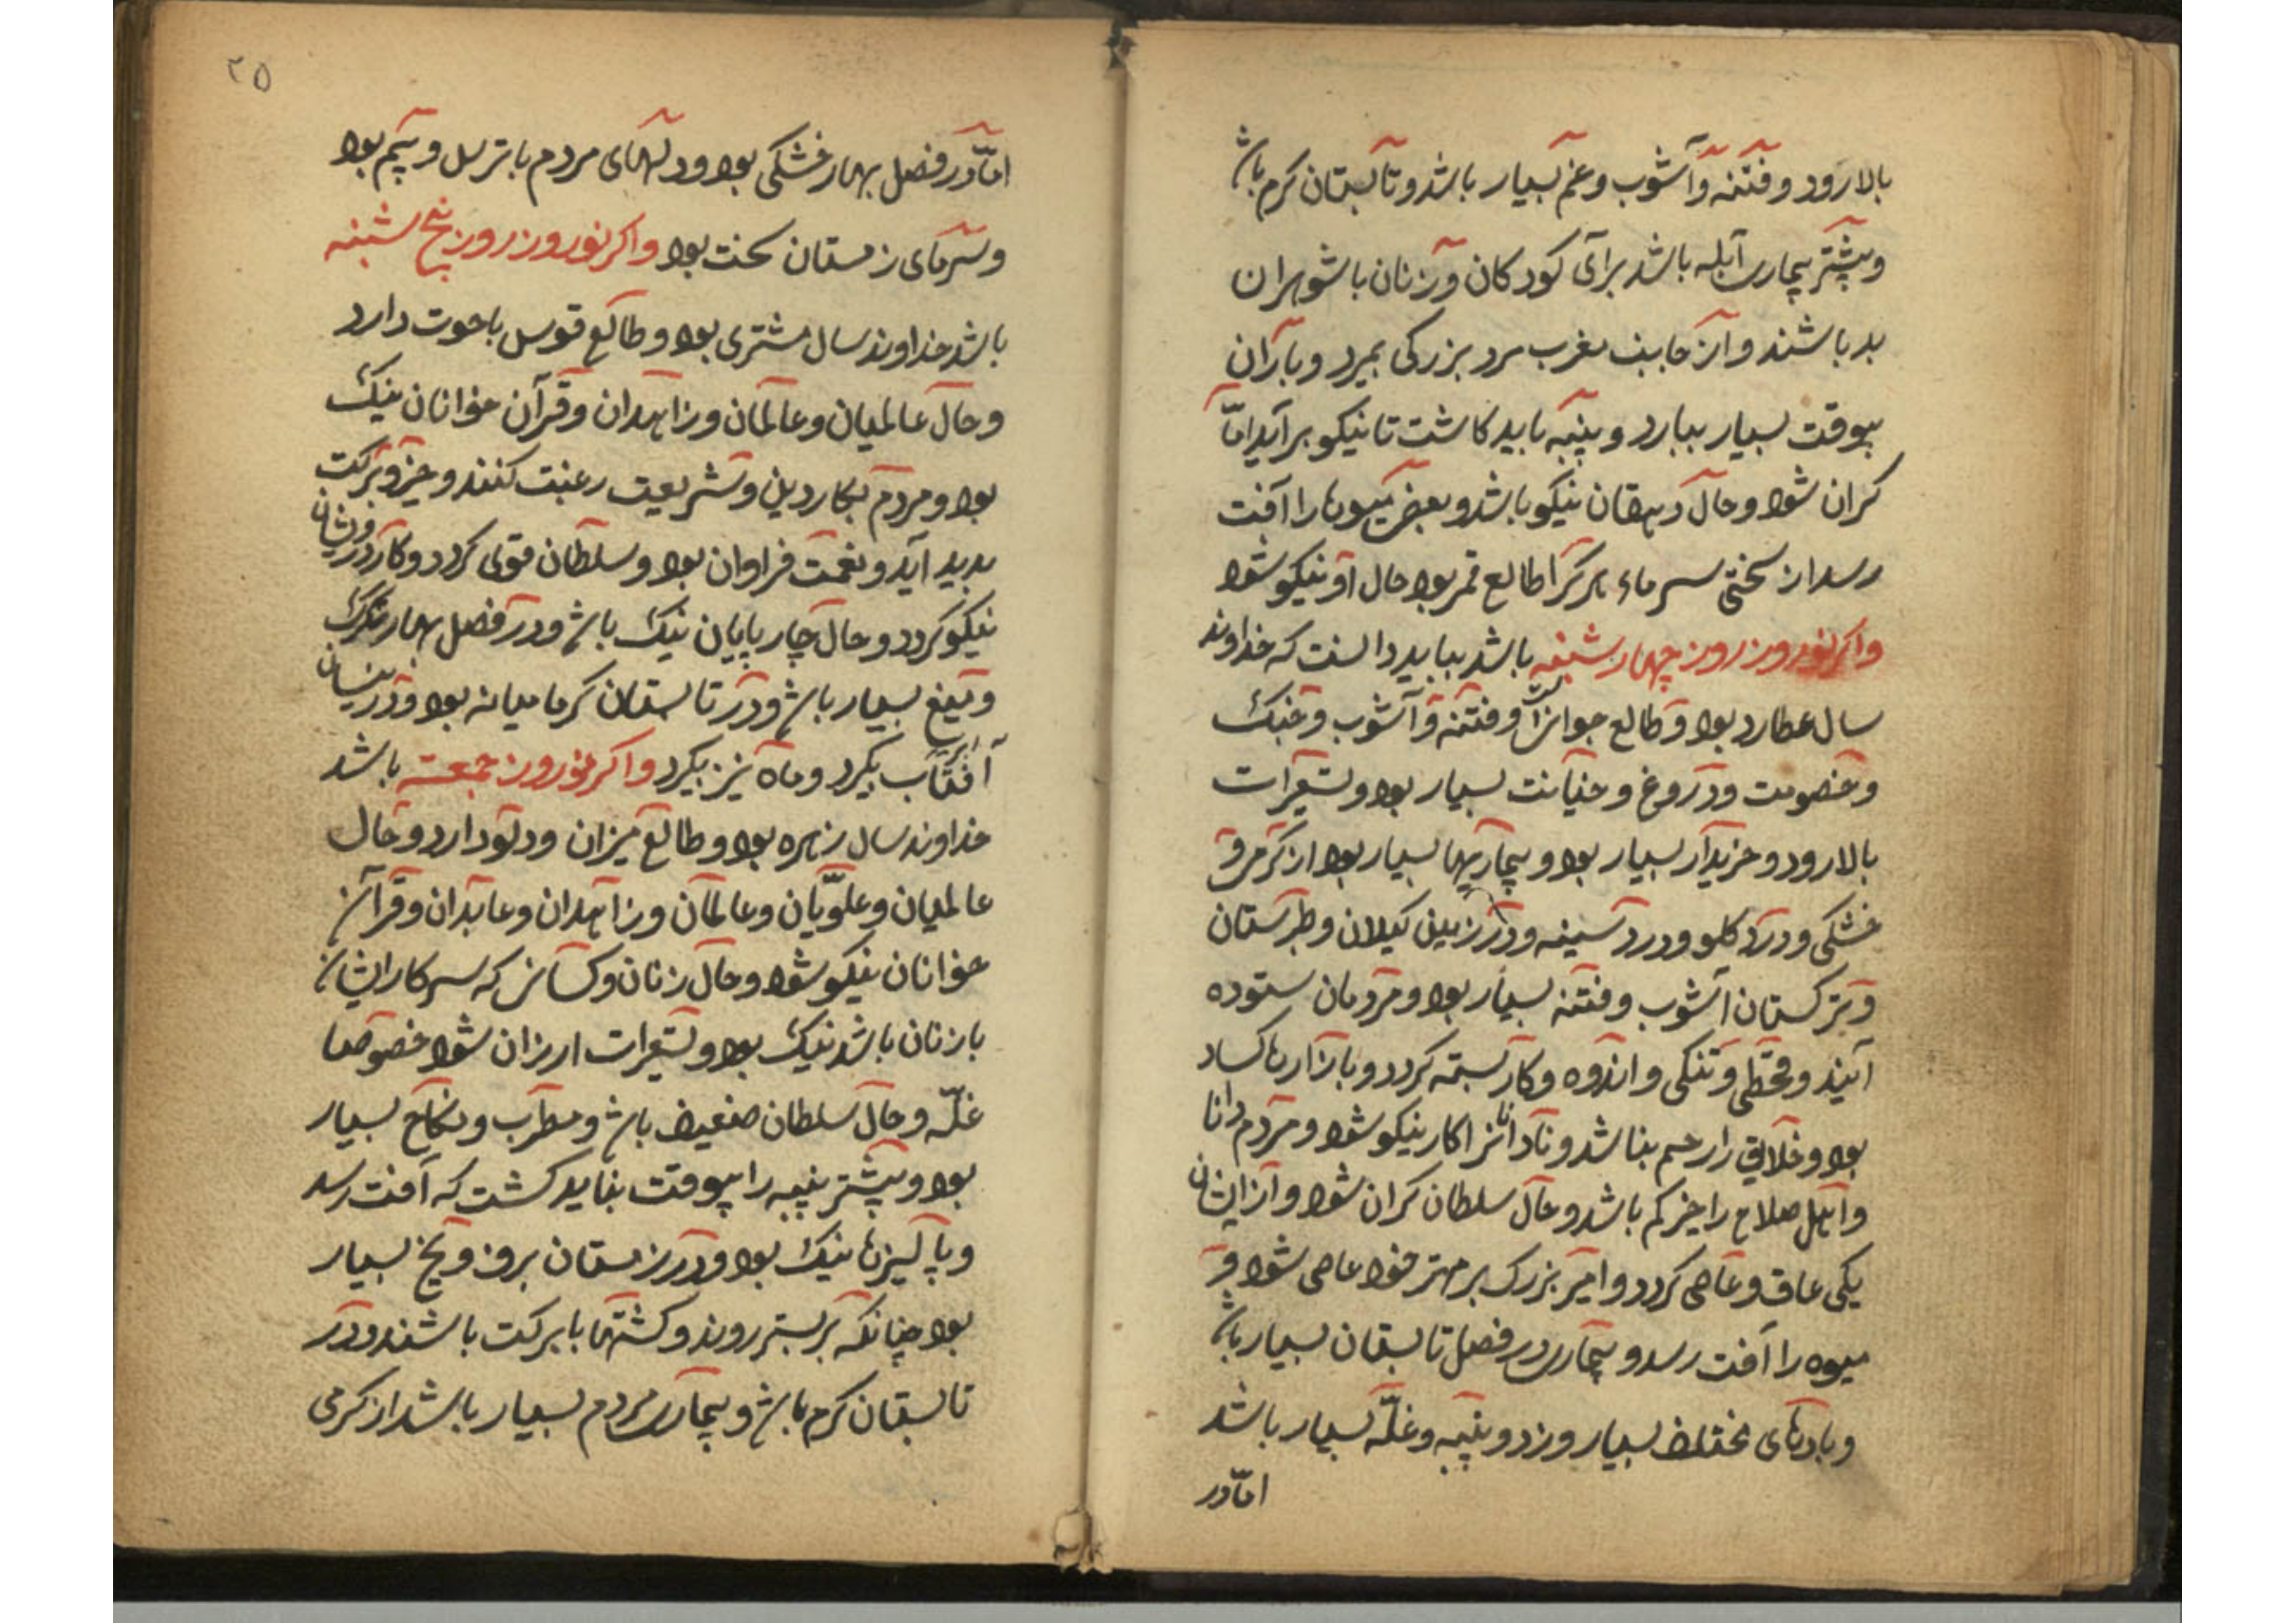 بالا رود و فتنه و آشوب و غم بسیار باشد و تابستان کرم باشد
و بیشتر بیماری آبله باشد برای کودکان و زنان با شوهران
بد باشند و از جانب مغرب مرد بزرکی بمیرد و باران
بوقت بسیار ببارد و پنبه باید کاشت تا نیکو برآید امّا
کران شود و حال دهقان نیکو باشد و بعضی میوها را آفت
رسد از سختی سرماء هر کرا طالع قمر بود حال او نیکو شود
واکر نوروز روز چهارشنبه باشد بباید دانست که خداوند
سال عطارد بود و طالع جوزا و فتنه و آشوب و جنک
و خصومت و دروغ و خیانت بسیار بود و تسعیرات
بالا رود و خریدار بسیار بود و بیماریها بسیار بود از کرمی و
خشکی و درد کلو و درد سینه و در زمین کیلان و طبرستان
و ترکستان آشوب و فتنه بسیار بود و مردمان ستوده
آیند و قحطی و تنکی و اندوه و کار بسته کردد و بازارها کساد
بود و خلایق را رحم نباشد و نادانانرا کار نیکو شود و مردم دانا
و اهل صلاح را خیر کم باشد و حال سلطان کران شود و از ایشان
یکی عاق و عاصی کردد و امیر بزرک بر مهتر خود عاصی شود و
میوه را آفت رسد و بیماری در فصل تابستان بسیار باشد
و بادهای مختلف بسیار وزد و پنبه و غلّه بسیار باشد
امّا در
۲۵
امّا در فصل بهار خشکی بود و دلهای مردم با ترس و بیم بود
و سرمای زمستان سخت بود واکر نوروز روز پنج شنبه
باشد خداوند سال مشتری بود و طالع قوس با حوت دارد
و حال عالمیان و عالمان و زاهدان و قرآن خوانان نیک
بود و مردم بکار دین و شریعت رغبت کنند و خیر و برکت
پدید آید و نعمت فراوان بود و سلطان قوی کردد و کار درویشان
نیکو کردد و حال چارپایان نیک باشد و در فصل بهار تکرک
و میغ بسیار باشد و در تابستان کرما میانه بود و در نیسان
آفتاب بکیرد و ماه نیز بکیرد واکر نوروز جمعه باشد
خداوند سال زهره بود و طالع میزان و دلو دارد و حال
عالمیان و علویّان و عالمان و زاهدان و عابدان و قرآن
خوانان نیکو شود و حال زنان و کسانی که سر کار ایشان
با زنان باشد نیک بود و تسعیرات ارزان شود خصوصا
غلّه و حال سلطان ضعیف باشد و مطرب و نکاح بسیار
بود و بیشتر پنبه را بوقت بناید کشت که آفت رسد
و پالیزها نیک بود و در زمستان برف و یخ بسیار
بود چنانکه بر بستر روند و کشتها با برکت باشند و در
تابستان کرم باشد و بیماری مردم بسیار باشد از کرمی